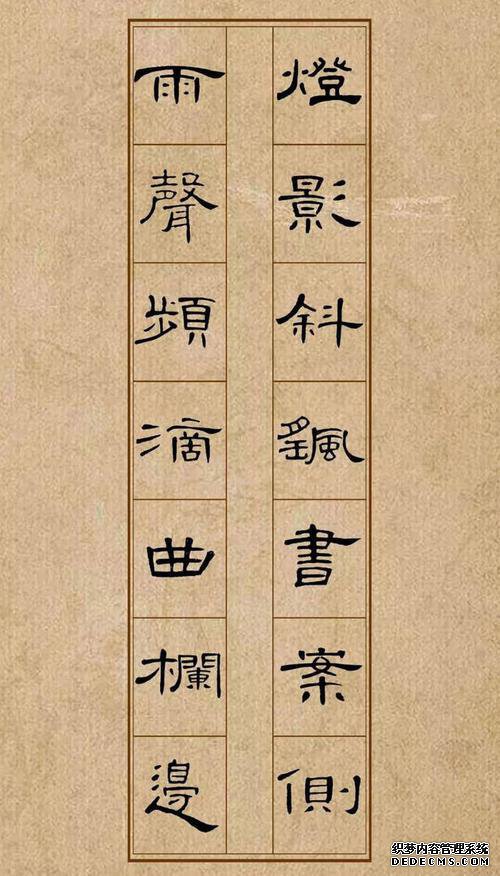 燈影斜飄書案側
雨聲頻滴曲欄邊
织梦内容管理系统
DEDECMS.COM